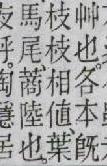 艸也。各本旣
枝枝相値葉
馬尾、蔏陸也。
呼。陶隱居